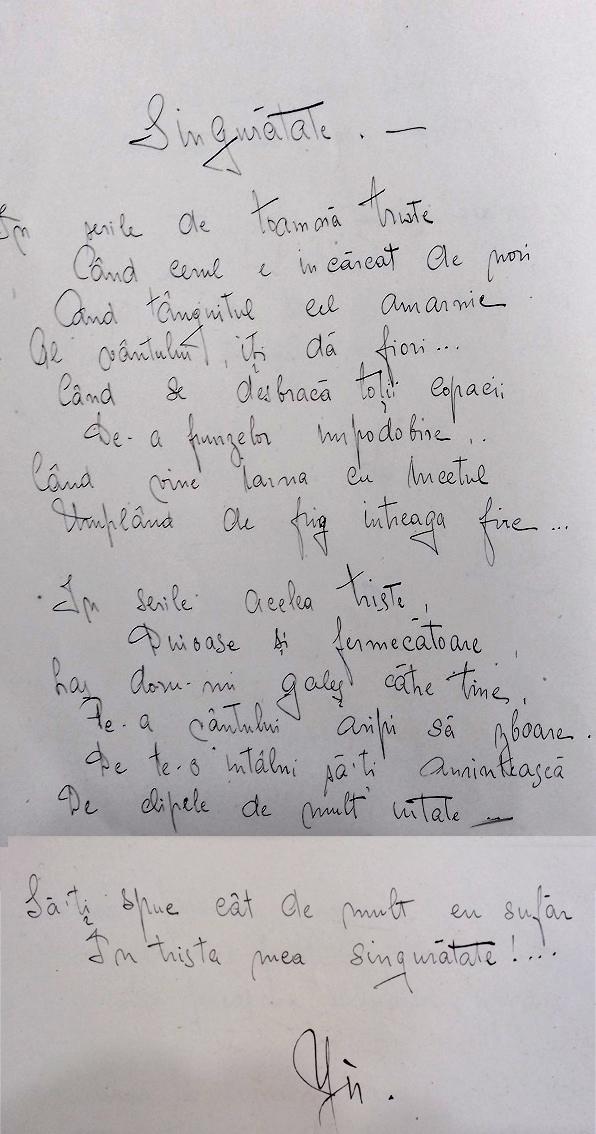 Singurătate. —
In serile de toamnă triste
Când cerul e încărcat de nori
Când tânguitul cel amarnic
Al vântului, îți dă fiori...
Când se desbracă toții copacii
De-a frunzelor împodobire..
Când vine iarna cu încetul
Umplând de frig întreaga fire...
In serile acelea triste,
Duioase și fermecătoare,
Las doru-mi galeș către tine,
Pe-a vântului aripi să zboare.
De te-o întâlni să-ți amintească
De clipele de mult uitate —
Să-ți spue cât de mult eu sufăr
In trista mea singurătate!...